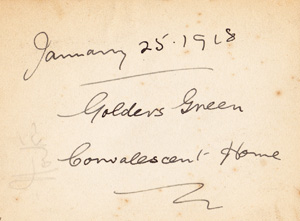 January 25. 1918
Golders Green
Convalescent Home